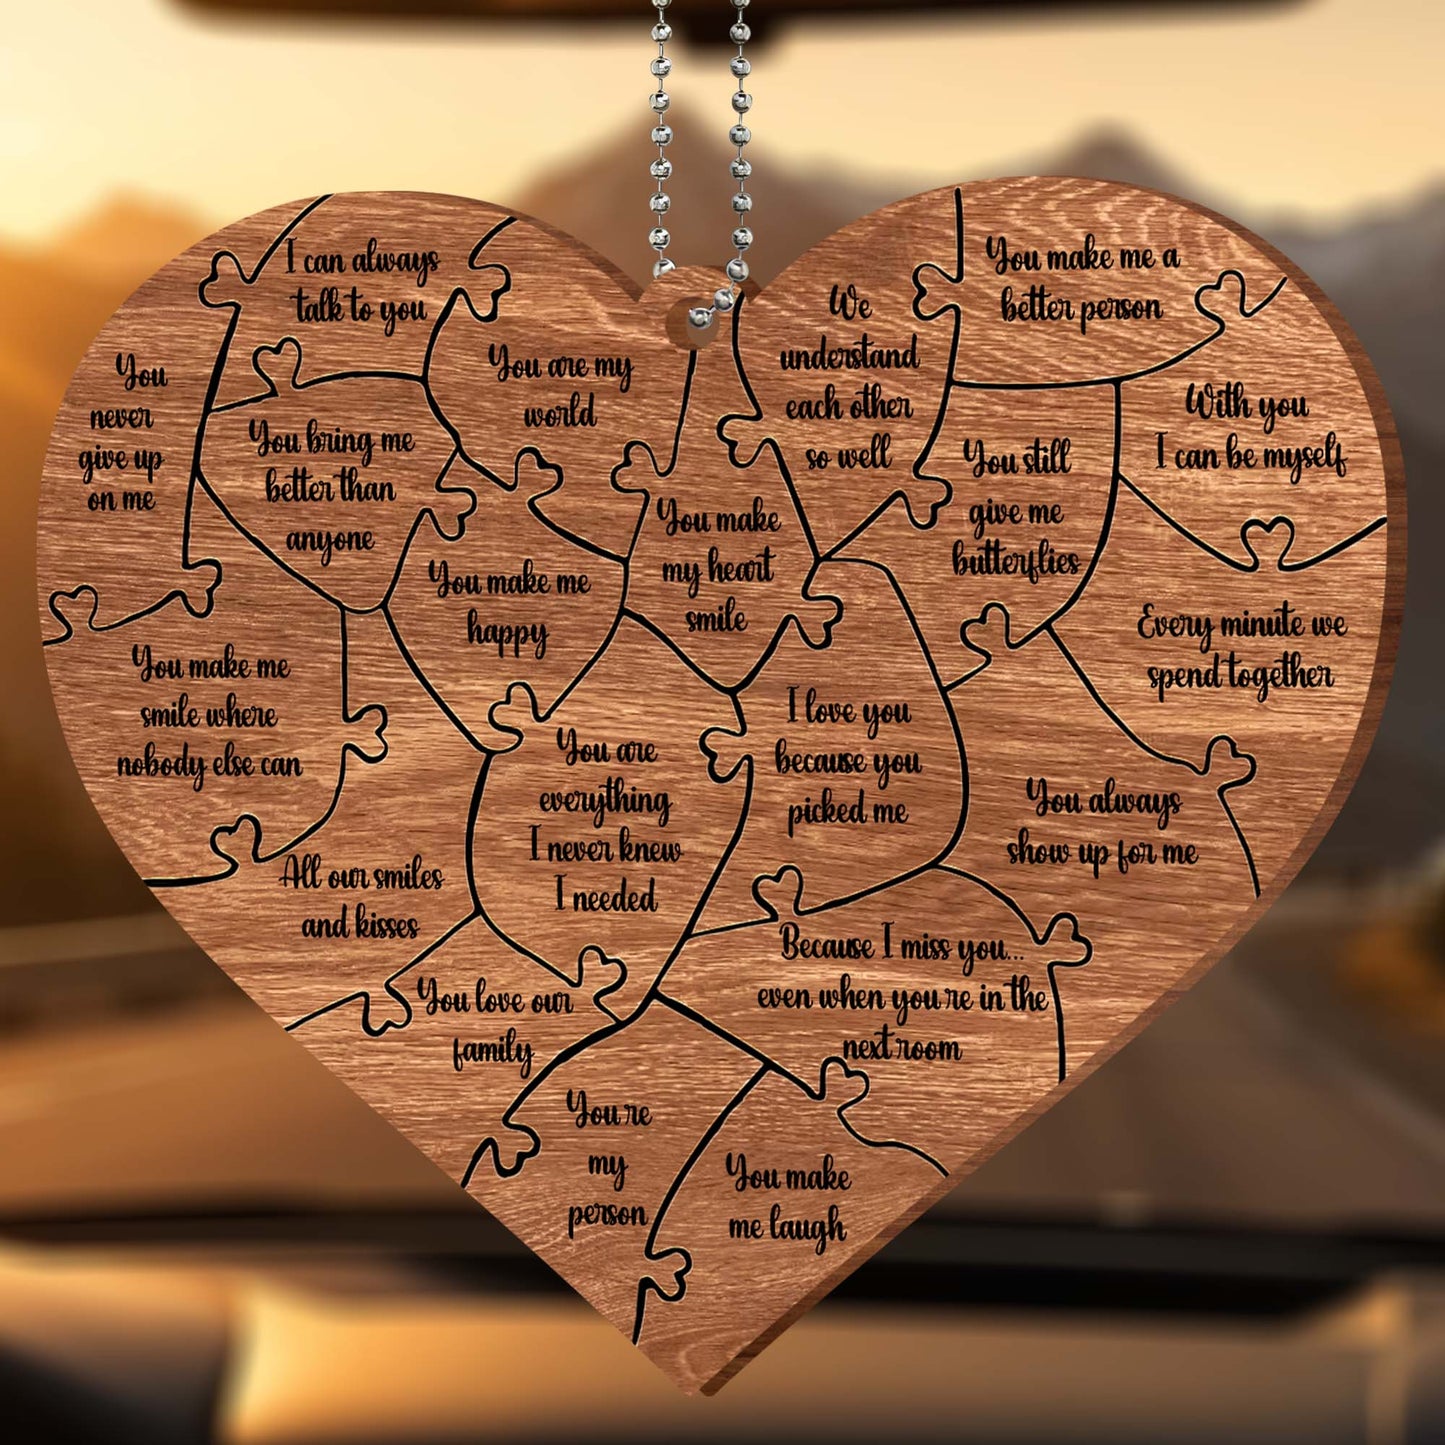 I can always
talk to you
You are my
world
We
understand
each other
so well
You make me a
better person
You
never
give up
on me
You bring me
better than
anyone
You make
my heart
smile
You still
give me
butterflies
With you
I can be myself
You make me
happy
Every minute we
spend together
You make me
smile where
nobody else can
You are
everything
I never knew
I needed
I love you
because you
picked me
You always
show up for me
All our smiles
and kisses
You love our
family
Because I miss you...
even when you're in the
next room
You're
my
person
You make
me laugh